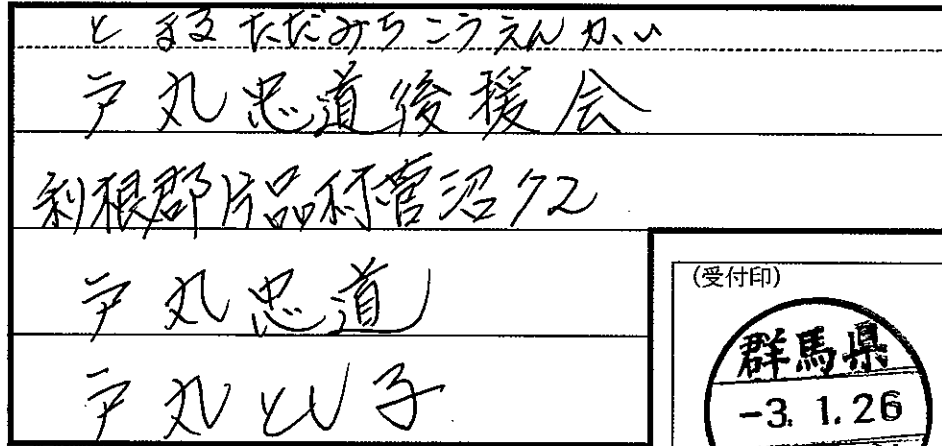 とまるただみちこうえんかい
戸丸忠道後援会
利根郡片品村菅沼72
戸丸忠道
戸丸とし子
(受付印)
群馬県
-3.1.26